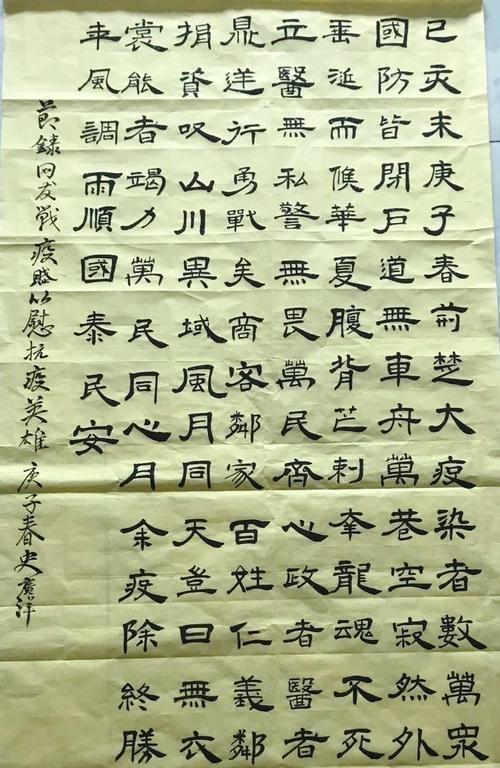 已亥末庚子春荊楚大疫染者數萬眾
國防皆閉戶道無車舟萬巷空寂然外
垂涎而候華夏腹背芒刺幸龍魂不死
立醫無私警無畏萬民齊心政者醫者
鼎逆行勇戰矣商客鄰家百姓仁義鄰
捐資叹山川異域風月同天豈曰無衣
裳能者竭力萬民同心月余疫除終勝
年風調雨順國泰民安
節錄网友戰疫賦以慰抗疫英雄 庚子春史廣洋